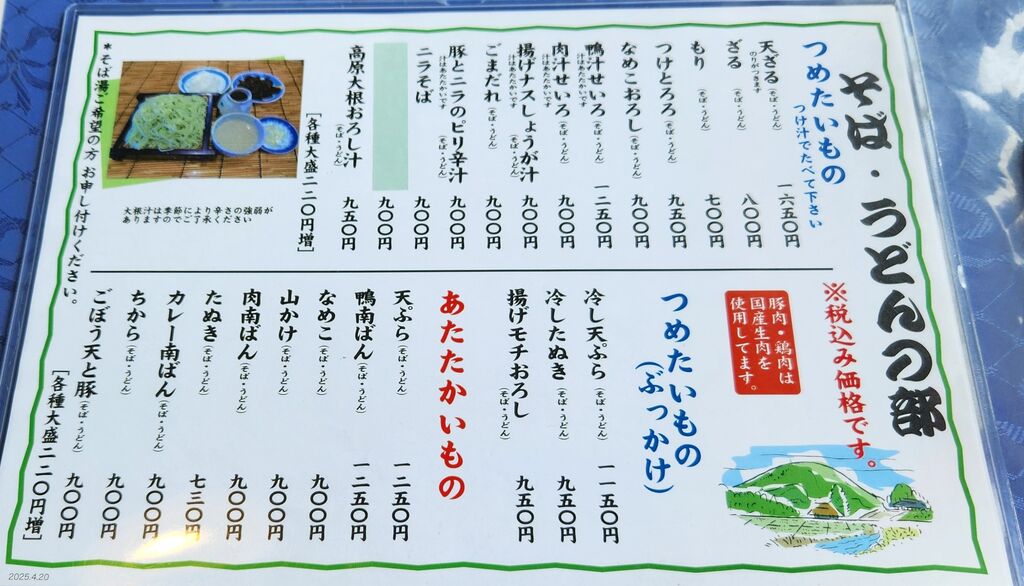 そば・うどんの部
※税込み価格です。
豚肉・鶏肉は
国産生肉を
使用してます。
つめたいもの
つけ汁でたべて下さい
天ざる（そば・うどん） 一六五〇円
のりがつきます
ざる（そば・うどん） 八〇〇円
もり（そば・うどん） 七〇〇円
つけとろろ（そば・うどん） 九五〇円
なめこおろし（そば・うどん） 九〇〇円
鴨汁せいろ（そば・うどん） 一二五〇円
汁はあたたかいです
肉汁せいろ（そば・うどん） 九〇〇円
汁はあたたかいです
揚げナスしょうが汁（そば・うどん） 九〇〇円
汁はあたたかいです
ごまだれ（そば・うどん） 九〇〇円
豚とニラのピリ辛汁（そば・うどん） 九〇〇円
汁はあたたかいです
ニラそば 九〇〇円
九〇〇円
高原大根おろし汁（そば・うどん） 九五〇円
［各種大盛二二〇円増］
大根汁は季節により辛さの強弱が
ありますのでご了承ください
＊そば湯ご希望の方お申し付けください。
つめたいもの
（ぶっかけ）
冷し天ぷら（そば・うどん） 一一五〇円
冷したぬき（そば・うどん） 九五〇円
揚げモチおろし（そば・うどん） 九五〇円
あたたかいもの
天ぷら（そば・うどん） 一二五〇円
鴨南ばん（そば・うどん） 一二五〇円
なめこ（そば・うどん） 九〇〇円
山かけ（そば・うどん） 九〇〇円
肉南ばん（そば・うどん） 九〇〇円
たぬき（そば・うどん） 七三〇円
カレー南ばん（そば・うどん） 九〇〇円
ちから（そば・うどん） 九〇〇円
ごぼう天と豚（そば・うどん） 九〇〇円
［各種大盛二二〇円増］
2025.4.20